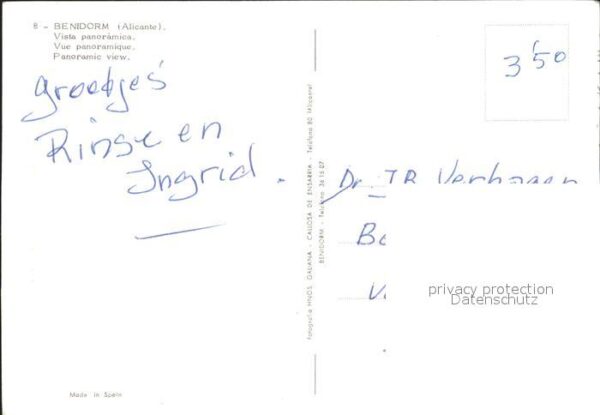 8 - BENIDORM (Alicante).
Vista panorámica.
Vue panoramique.
Panoramic view.
groetjes
Rinse en
Ingrid.
Made in Spain
Fotografía HNOS. GALIANA - CALLOSA DE ENSARRIA - Teléfono 80 (Alicante)
BENIDORM - Teléfono 36 15 07
3'50
Dr. J R Verhagen
Be
V
privacy protection
Datenschutz